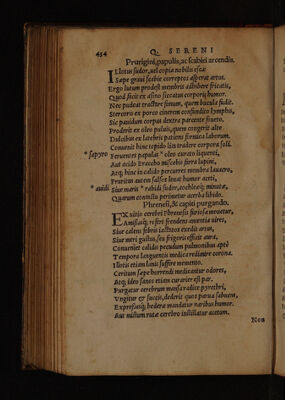 454 Q. SERENI
Prurigini, papulis, ac scabiei arcendis.
Illotus sudor, vel copia nobilis escæ
Sæpe graui scabie correptos asperat artus.
Ergo lutum prodest membris adhibere fricatis,
Quod facit ex asino siccatus corporis humor.
Nec pudeat tractare fimum, quem bucula fudit.
Stercore ex porco cinerem confundito lymphis,
Sic pauidum corpus dextra parcente fouetur.
Proderit ex oleo puluis, quem congerit alte
Dulcibus ex latebris patiens formica laborum.
Conuenit hinc tepido lin tradere corpora soli.
* sapyro Feruentes papulas * oleo curato liquenti,
Aut acido Braccho miscebis furra lupini,
Atq; hinc in calido percurres membra lauacro,
Pruritus aucem salsos leuat humor aceti,
* auidi Siue maris * rabidi sudor, cochleæq; minutæ,
Quarum conmistu perimetur acerba libido.
Phrenesi, & capiti purgando.
Ex vitio cerebri Phrenesis furiosa mouetur,
Amissasq; refert frendens amentia vires,
Siue calens febris iactatos exedit artus,
Siue meri gustus, seu frigoris efficit aura.
Conueniet calidis pecudum pulmonibus aptè
Tempora languentis medica redimire corona.
Illotis etiam lanis suffire memento.
Ceritum sæpe horrendi medicantur odores,
Atq; ideo sanies etiam curarier est par.
Purgatur cerebrum mansa radice pyrethri,
Vngitur & succis, dederit quos parua sabucus,
Expressusq; hederæ mandatur naribus humor.
Aut mistum rutæ cerebro instillatur acetum.
Non